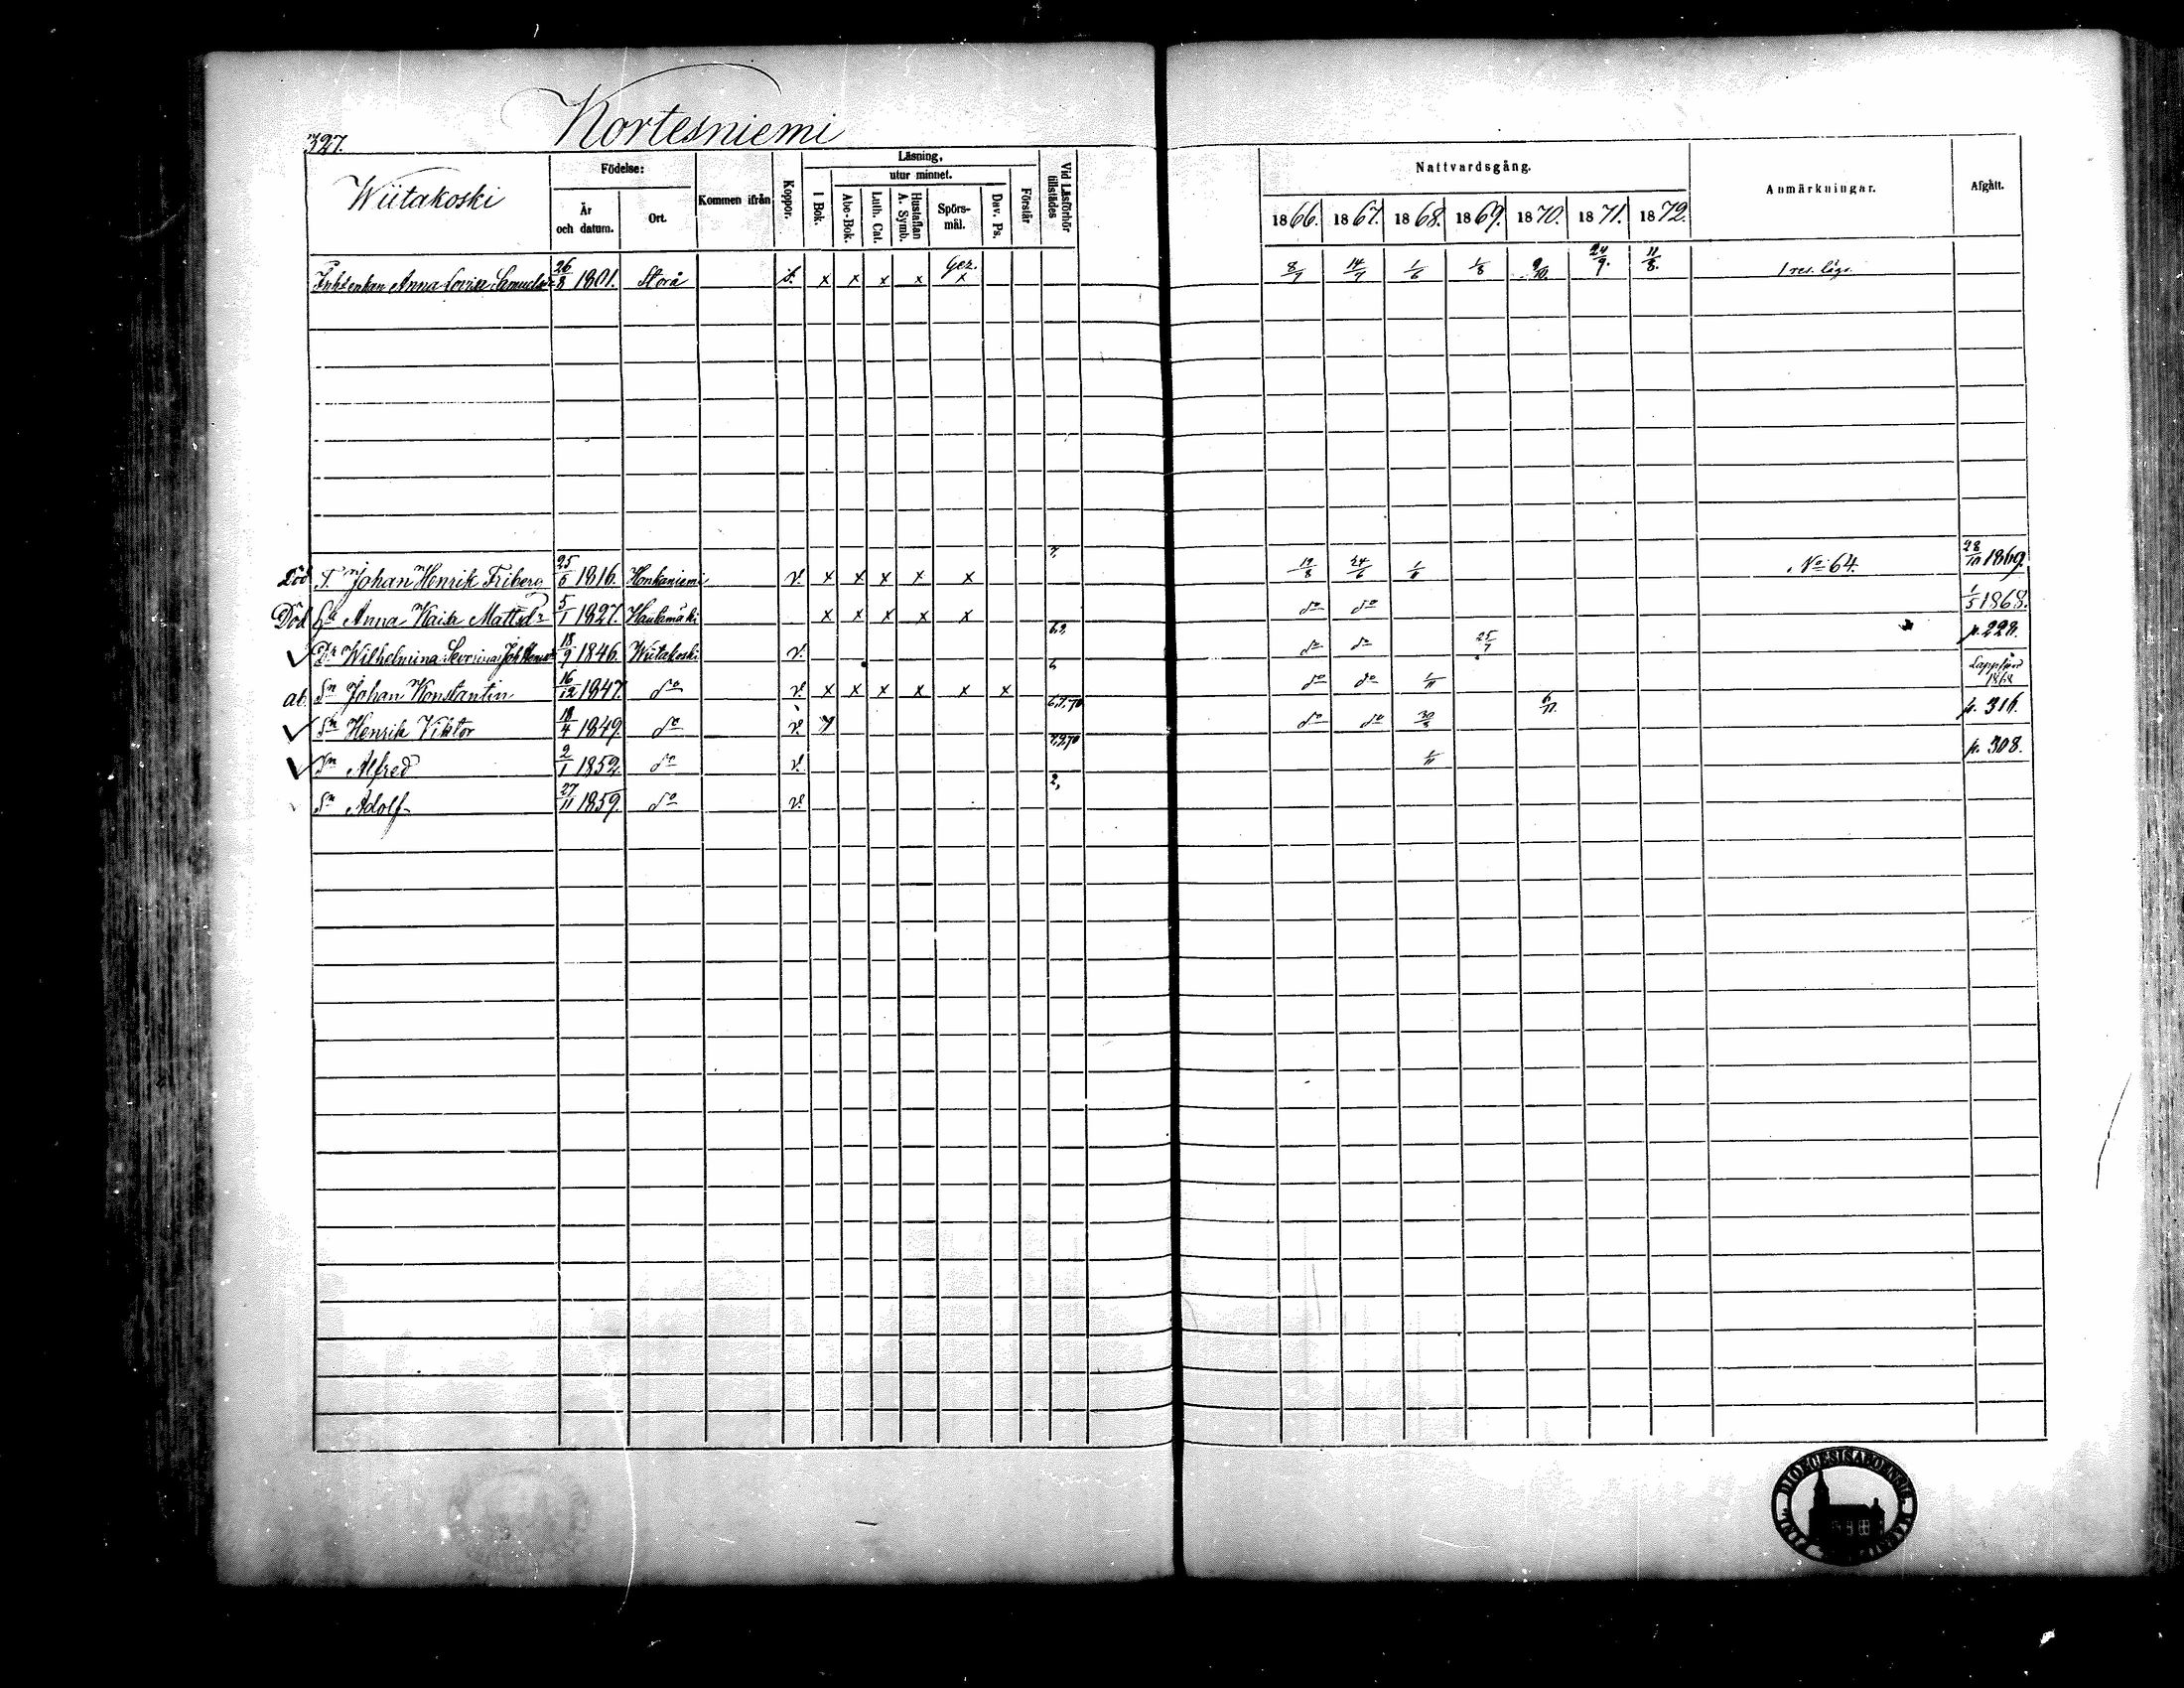 327.
Kortesniemi
Wiitakoski
Födelse:
År och datum.
Ort.
Kommen ifrån
Koppor.
Läsning,
utur minnet.
I Bok.
Abc-Bok.
Luth. Cat.
Hustaflan A. Symb.
Spörs-mål.
Dav. Ps.
Förstår
Vid Läsförhör tillstädes
Nattvardsgång.
1866. 1867. 1868. 1869. 1870. 1871. 1872.
Anmärkningar.
Afgått.
Anna Lovisa Samuelsdr 26/8 1801. Storå x x x x Gez. x 8/7 14/7 1/6 1/8 9/10. 24/9. 11/8.
Död T. Johan Henrik Friberg 25/6 1816. Honkaniemi v. x x x x x 7, 19/8 24/6 No 64. 28/10 1869.
Död Anna Kaisa Mattsdr 5/1 1827. Hautamäki x x x x x do do 1/5 1868.
Dr Wilhelmina Severina 18/9 1846. Wiitakoski v. do do 25/7 p. 228.
ab. Sn Johan Konstantin 16/12 1847. do v. x x x x x x do do 1/11 Lappfjärd 1868
Sn Henrik Viktor 18/4 1849. do v. 6,7,70 do do 30/3 6/11. p. 316.
Sn Alfred 2/1 1852. do v. 7,9,70 1/11 p. 308.
Sn Adolf 27/11 1859. do v. 2,
DIOECESIS ABOENSIS